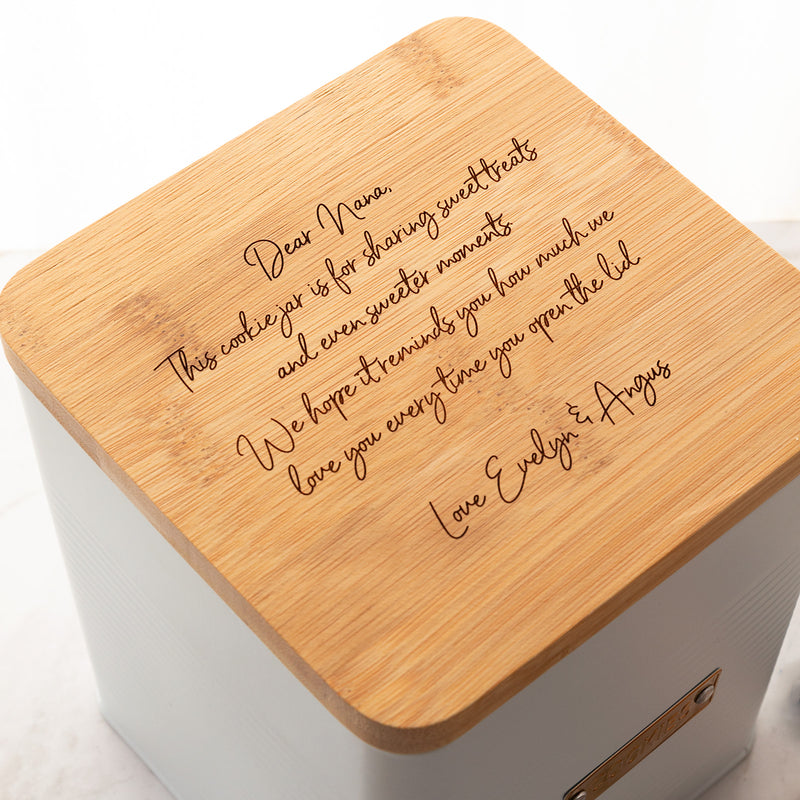 Dear Nana,
This cookie jar is for sharing sweet treats
and even sweeter moments.
We hope it reminds you how much we
love you every time you open the lid
Love Evelyn & Angus
COOKIES